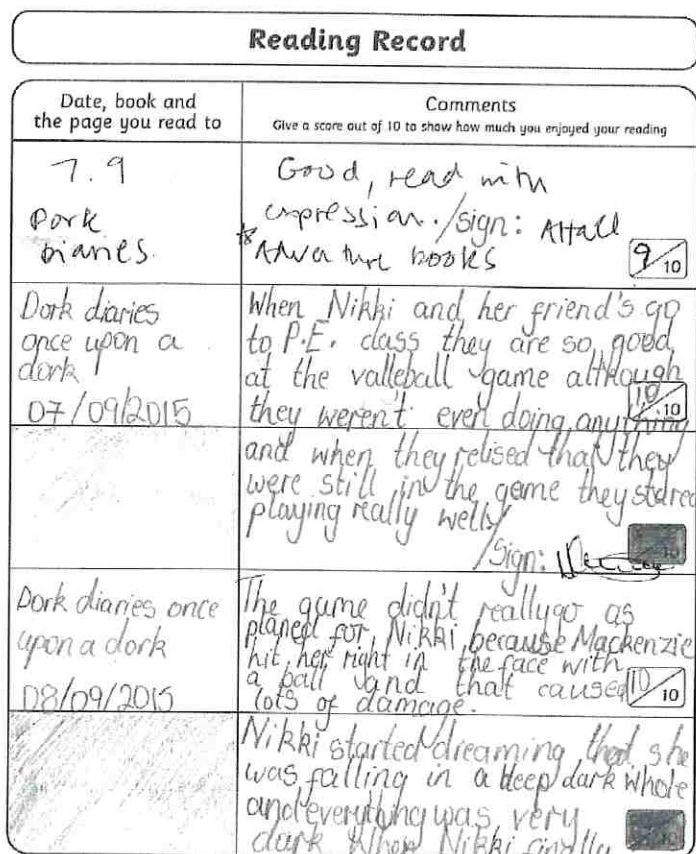 Reading Record
Date, book and
the page you read to
Comments
Give a score out of 10 to show how much you enjoyed your reading
7.9
Dork
Diaries.
Good, read with
expression. /sign: AHall
* Adventure books
9/10
Dork diaries
once upon a
dork
07/09/2015
When Nikki and her friend's go
to P.E. class they are so good
at the valleball game although
they weren't even doing anything
10/10
and when they relised that they
were still in the game they stared
playing really wells
/Sign:
10
Dork diaries once
upon a dork
08/09/2015
The game didn't really go as
planed for Nikki because Mackenzie
hit her right in the face with
a ball and that caused
lots of damage.
10/10
Nikki started dreaming that she
was falling in a deep dark whole
and everything was very
dark When Nikki finally
10